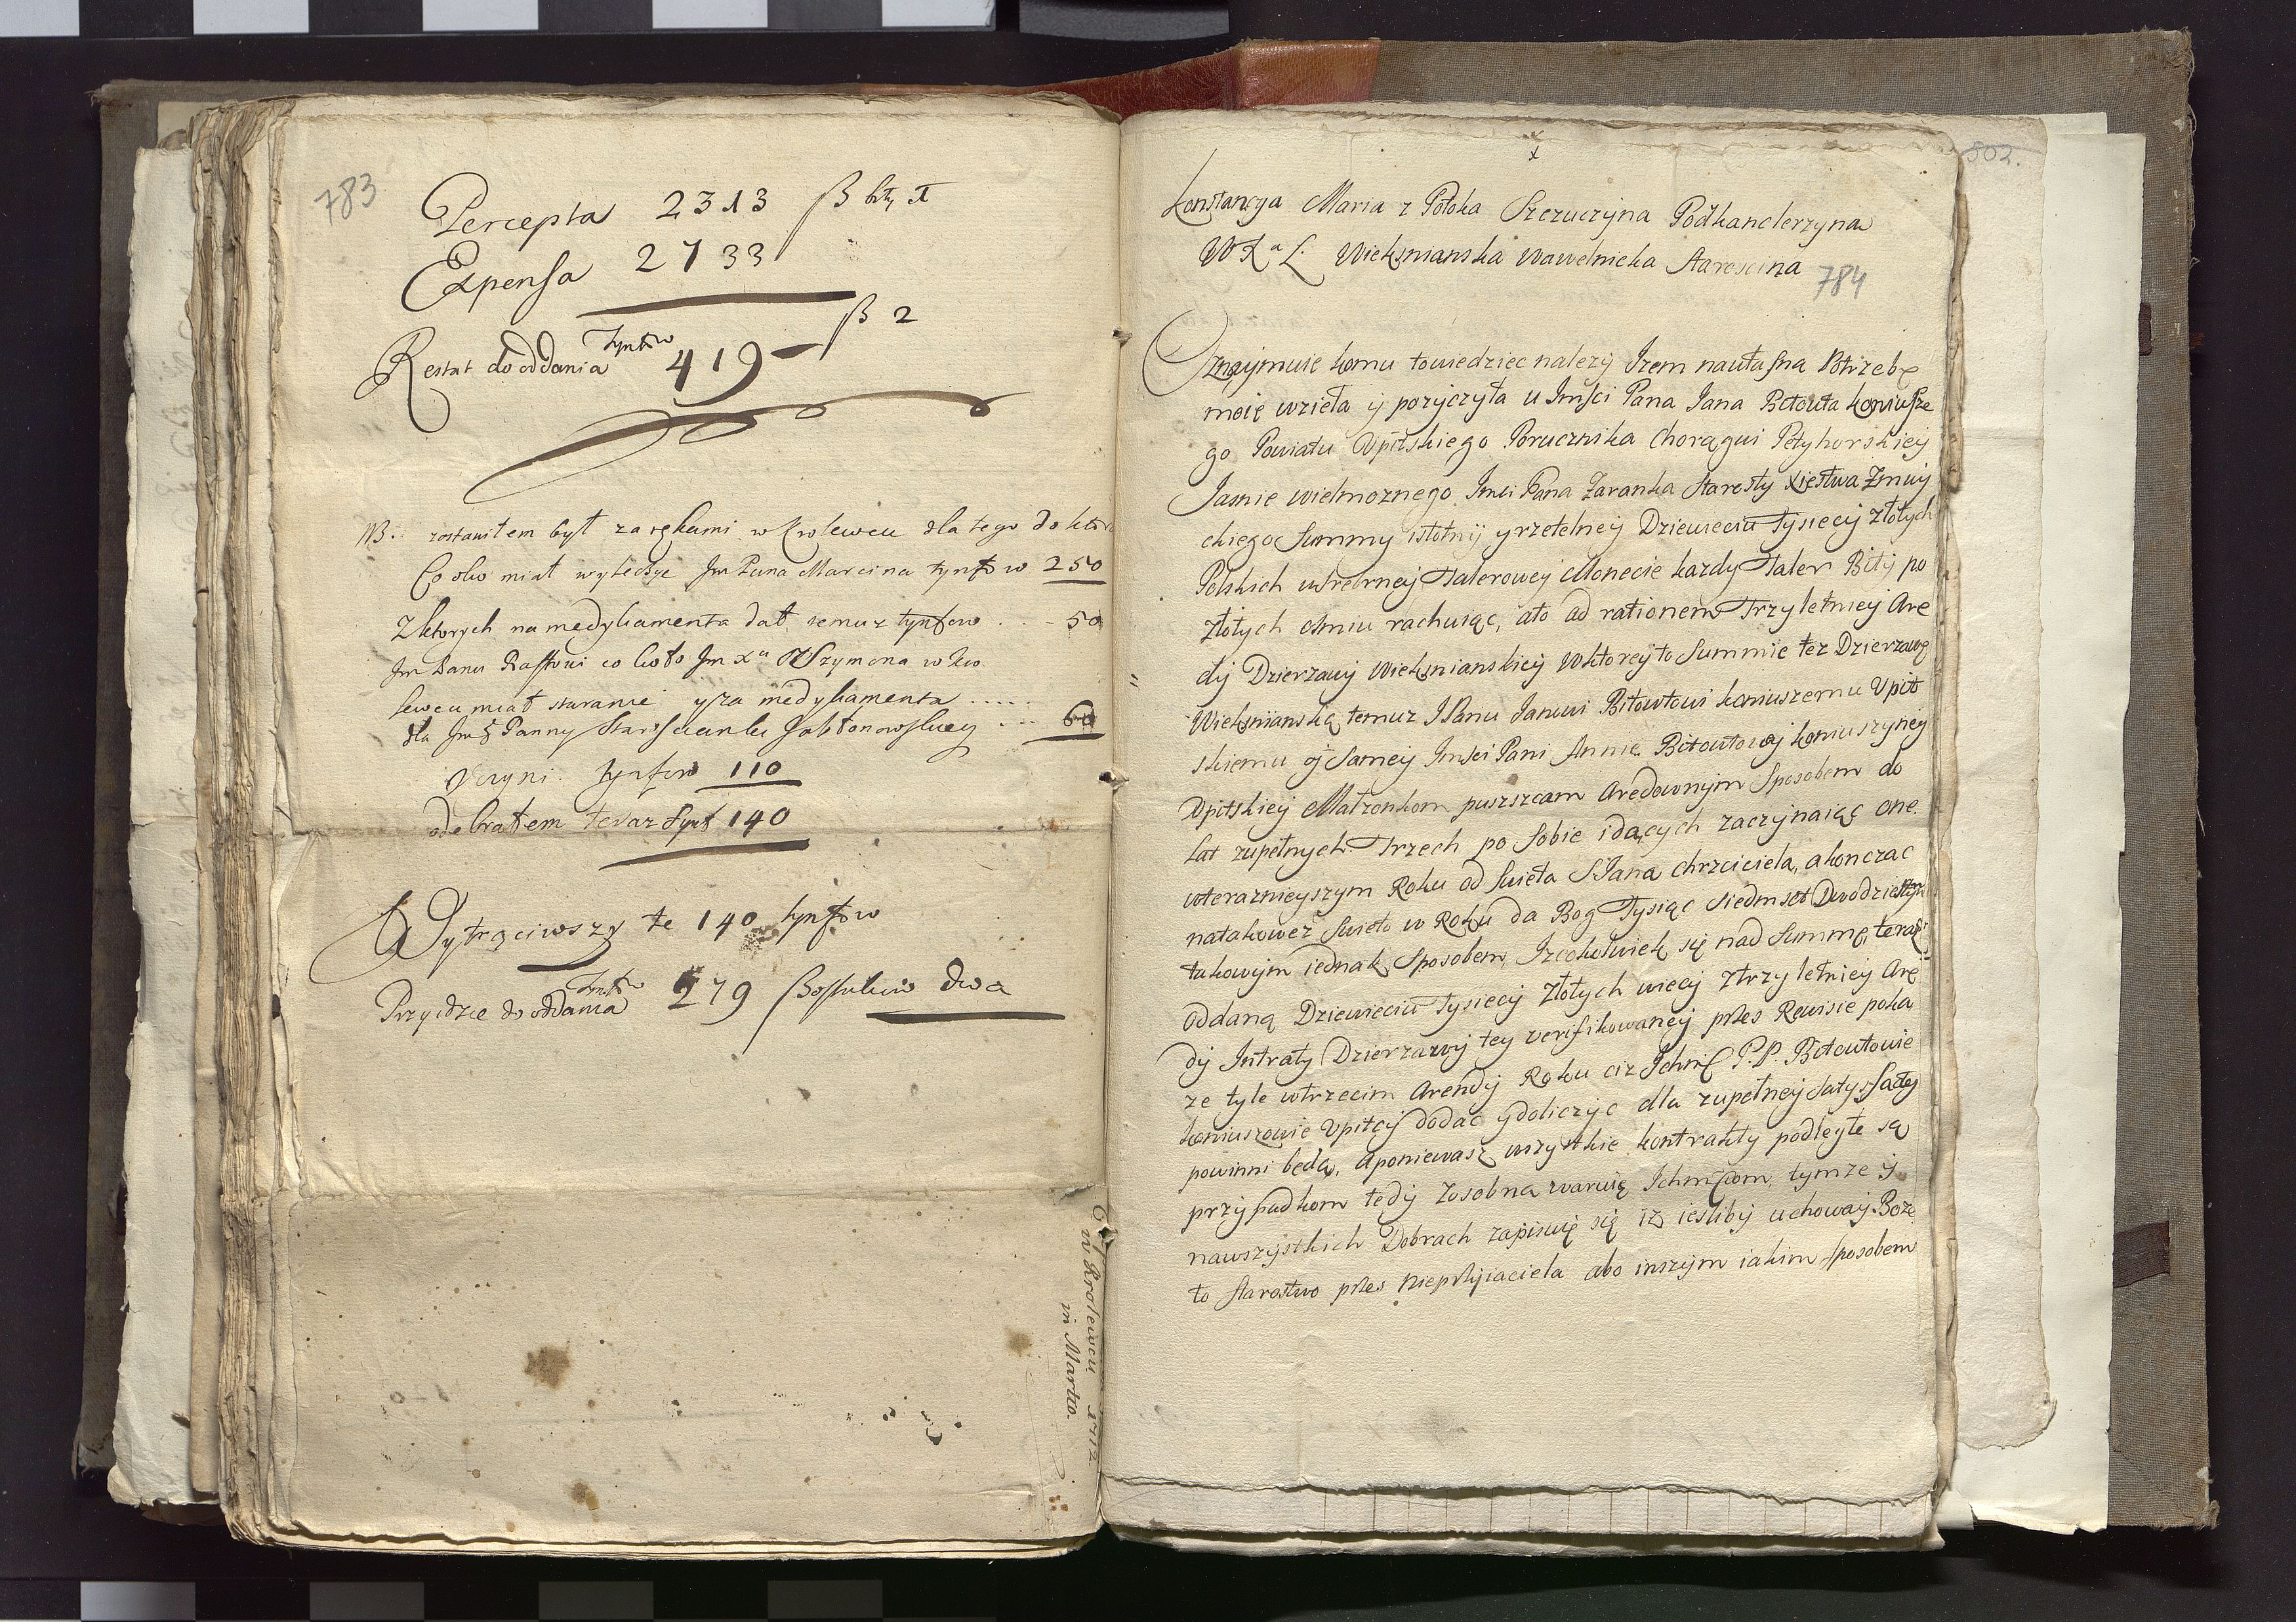 783
Percepta 2313 ß
Expensa 2733
ß 2
Restat do oddania tynfow 419
NB. zostawiłem był za rękami w Krolewcu dla tego doktor
Co oko miał wyleczyc Jm Pana Marcina tynfow 250
Z ktorych na medykamenta dał temuz tynfow . . - 50
Jm Panu co koło Jm Xa Szymona w Kro
lewcu miał staranie y za medykamenta .....
dla Panny Jabłonowskiey ... 60
Czyni. tynfow 110
odebrałem teraz tynf 140
Wytrąciwszy te 140 tynfow
Przyidzie do oddania tynfow 279 Szostakow dwa
w Krolewcu 1712
in Martio.
802.
x
Konstancya Maria z Potoka Szczuczyna Podkanclerzyna
W X a L. Wieksnianska Wawelnicka Starościna
784
Oznaymuie komu towiedziec nalezy Izem nawłasna Potrzebę
moię wzieła y pozyczyła u Imsci Pana Jana Bitowta Koniusze
go Powiatu Upitskiego Porucznika Chorągwi Petyhorskiey
Jasnie wielmoznego Imci Pana Zaranka Starosty Xięstwa Zmuy
ckiego Summy istotny yrzetelney Dziewieciu Tysiecy Złotych
Polskich wsrebrney Talerowey Monecie kazdy Taler Bity po
złotych osmiu rachuiąc, ato ad rationem Trzyletniey Arę
dy Dzierzawy Wieksnianskiey wktorey to Summie tez Dzierzawę
Wieksnianską temuz JPanu Janowi Bitowtowi koniuszemu Upit
skiemu y Samey Imsci Pani Annie Bitowtowey koniuszyney
Upitskiey Małzonkom puszszcam Arędownym Sposobem do
Lat zupełnych Trzech po Sobie idących zaczynaiąc one
wteraznieyszym Roku od Swieta S Jana chrzciciela, akonczac
natakowez Swieto w Roku da Bog Tysiąc Siedmset Dwodziestym
takowym iednak Sposobem, Izeokolwiek się nad Summę, teraz
oddaną Dziewieciu Tysiecy Złotych wiecy ztrzyletniey Arę
dy Intraty Dzierzawy tey verifikowaney przes Rewisie poka
ze tyle wtrzecim Arendy Roku ciz Ichmć P.P. Bitowtowie
koniuszowie Upitcy dodac ydoliczyc dla zupełney Satysfacty
powinni będą, Aponiewasz wszystkie kontrakty podległe są
przypadkom tedy zosobna waruię Ichmściom, tymze y
nawszystkich Dobrach zapisuię się iz iesliby uchoway Boze
to Starostwo przes Nieprzyiaciela abo inszym iakim Sposobem